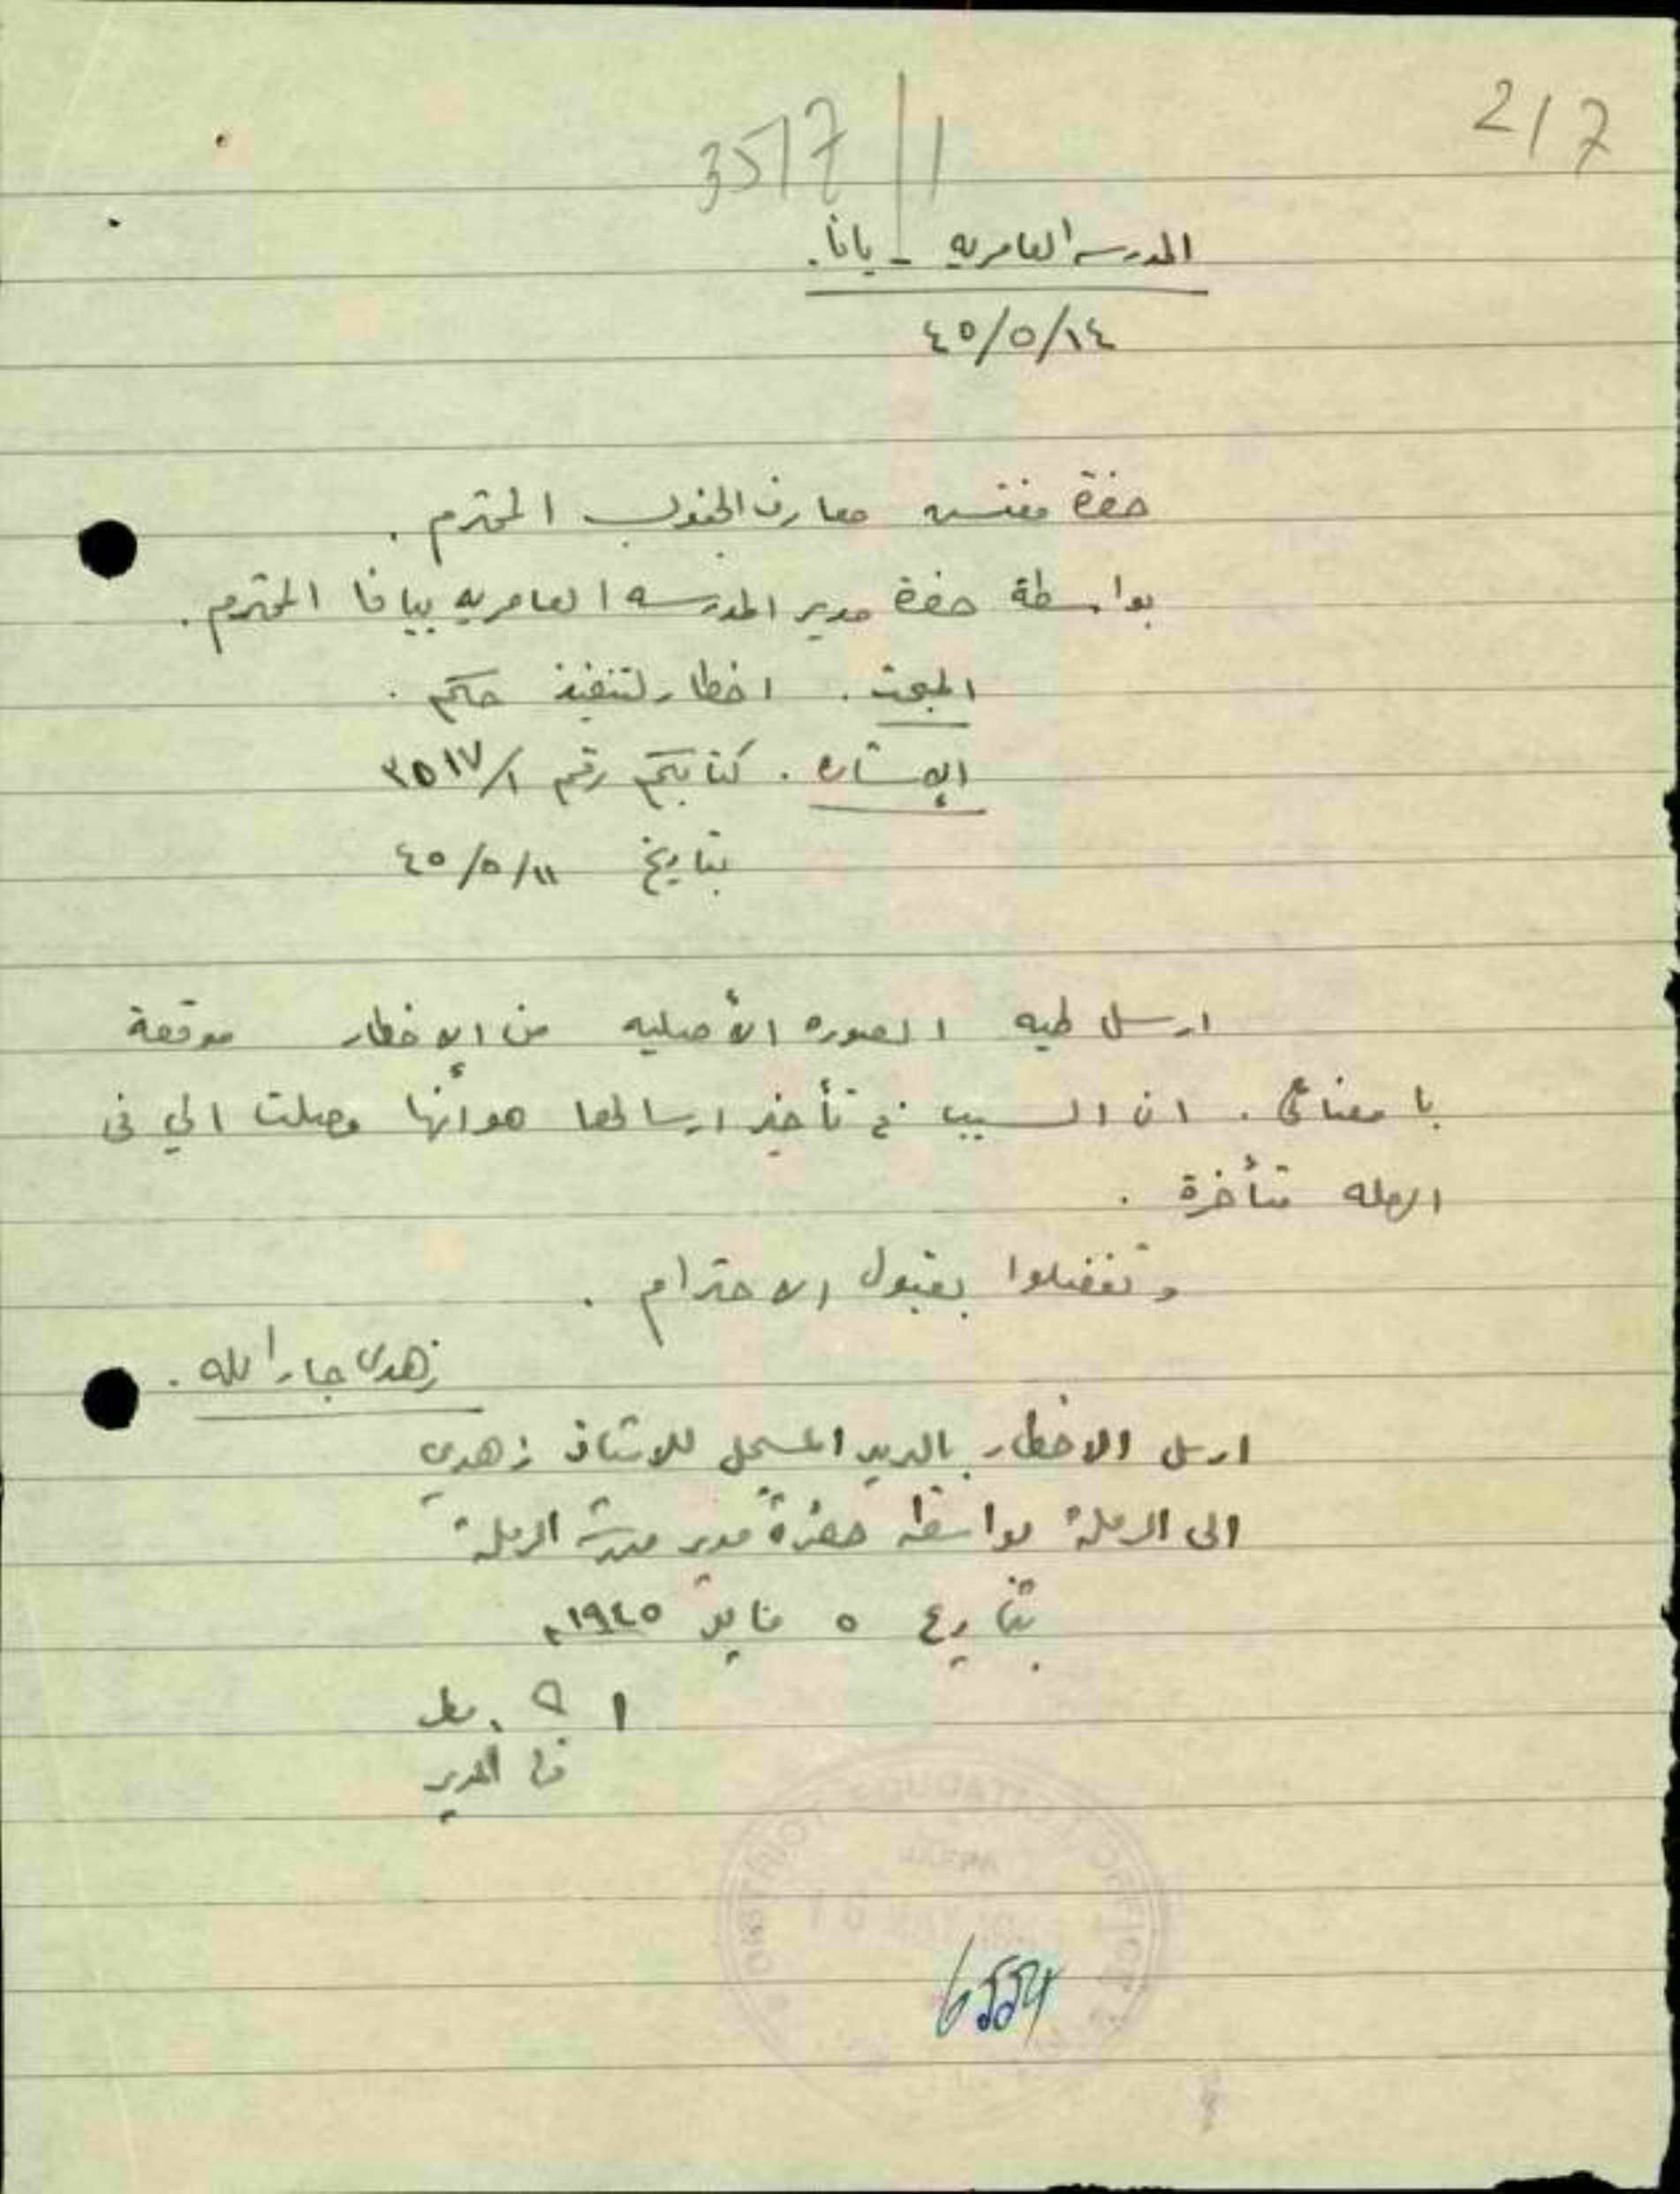 217
3517/1
المدرسه العامريه - يافا.
١٤/٥/٤٥
حضرة مفتش معارف الجنوب المحترم.
بواسطة حضرة مدير المدرسه العامريه بيافا المحترم.
المبحث. اخطار لتنفيذ حكم.
الإشاره. كتابكم رقم ٣٥١٧/١
بتاريخ ١١/٥/٤٥
ارسل طيه الصوره الأصليه من الإخطار موقعة
بامضائي. ان السبب في تأخير ارسالها هو أنها وصلت الي في
الرمله متأخرة.
وتفضلوا بقبول الاحترام.
زهدى جار الله.
ارسل الاخطار بالبريد المسجل للاستاذ زهدي
الى الرملة بواسطة حضرة مدير مدرسة الرملة
بتاريخ ٥ مايو ١٩٤٥م
المدير
DISTRICT EDUCATION OFFICE
JAFFA
6554